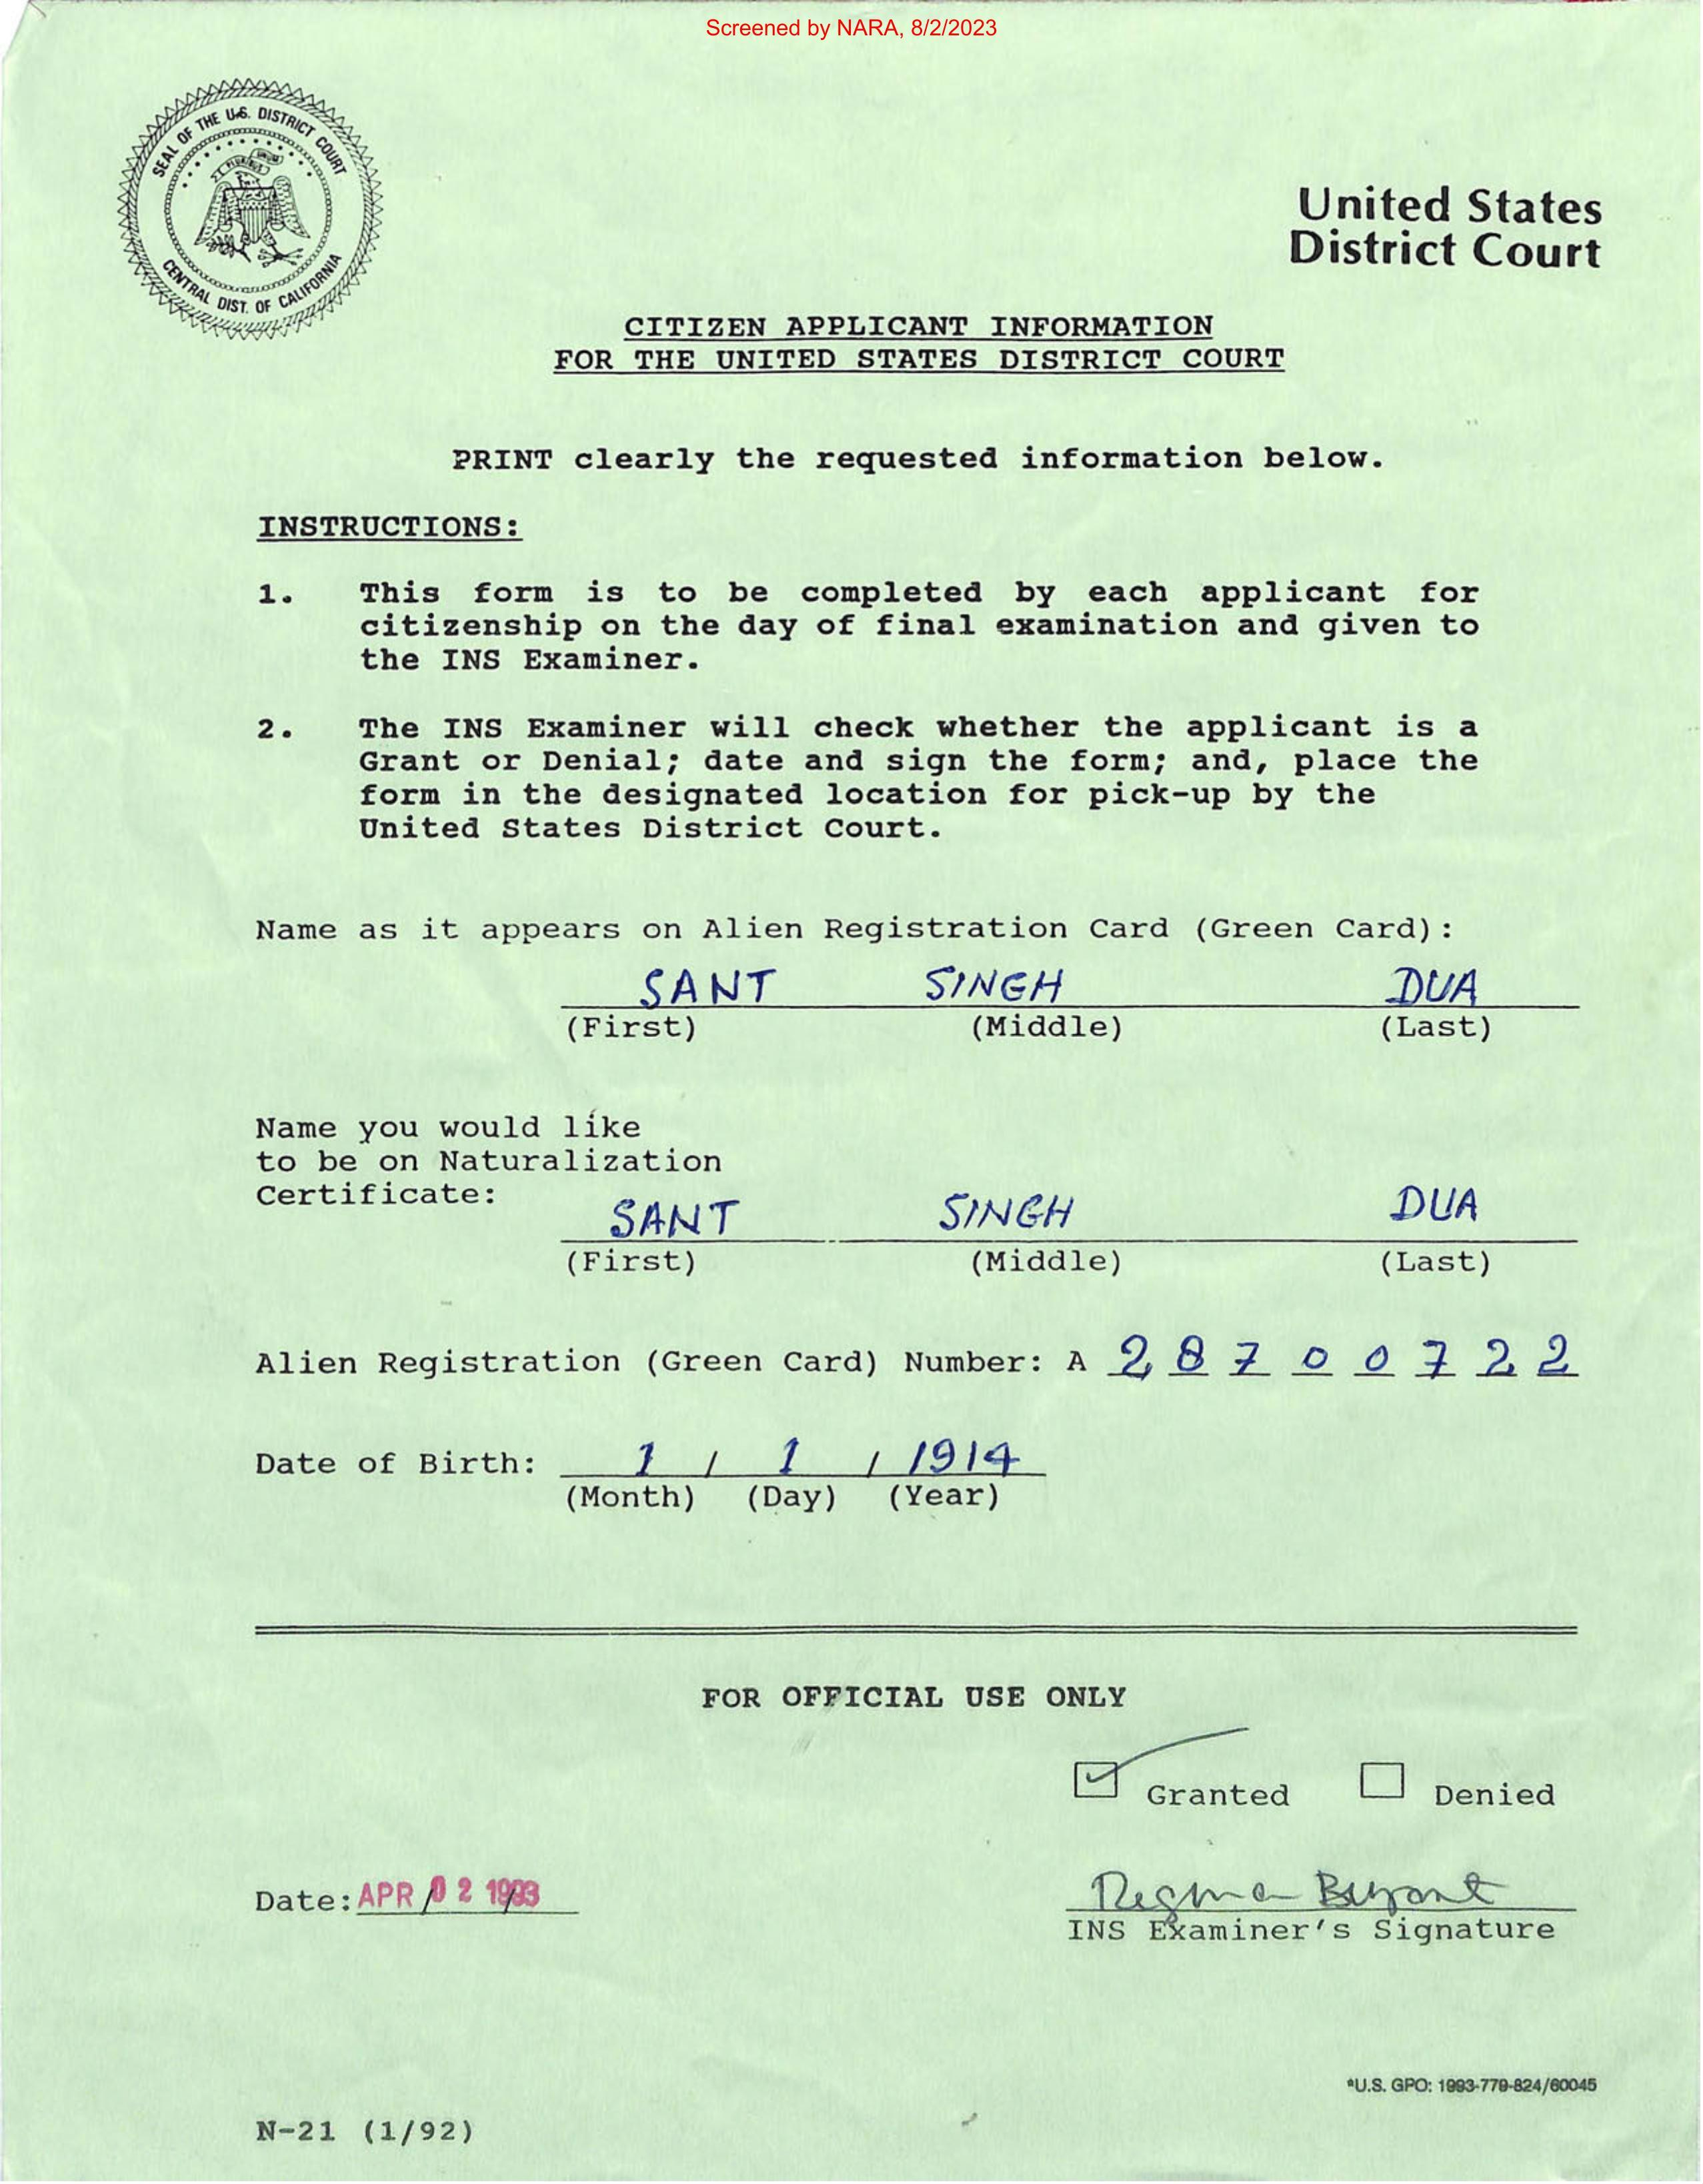 Screened by NARA, 8/2/2023
SEAL OF THE U.S. DISTRICT COURT
E PLURIBUS UNUM
CENTRAL DIST. OF CALIFORNIA
United States
District Court
CITIZEN APPLICANT INFORMATION
FOR THE UNITED STATES DISTRICT COURT
PRINT clearly the requested information below.
INSTRUCTIONS:
1. This form is to be completed by each applicant for
citizenship on the day of final examination and given to
the INS Examiner.
2. The INS Examiner will check whether the applicant is a
Grant or Denial; date and sign the form; and, place the
form in the designated location for pick-up by the
United States District Court.
Name as it appears on Alien Registration Card (Green Card):
SANT SINGH DUA
(First) (Middle) (Last)
Name you would like
to be on Naturalization
Certificate:
SANT SINGH DUA
(First) (Middle) (Last)
Alien Registration (Green Card) Number: A 2 8 7 0 0 7 2 2
Date of Birth: 1 / 1 / 1914
(Month) (Day) (Year)
FOR OFFICIAL USE ONLY
Granted Denied
Date: APR 02 1993
Regina Bryant
INS Examiner's Signature
*U.S. GPO: 1993-779-824/60045
N-21 (1/92)